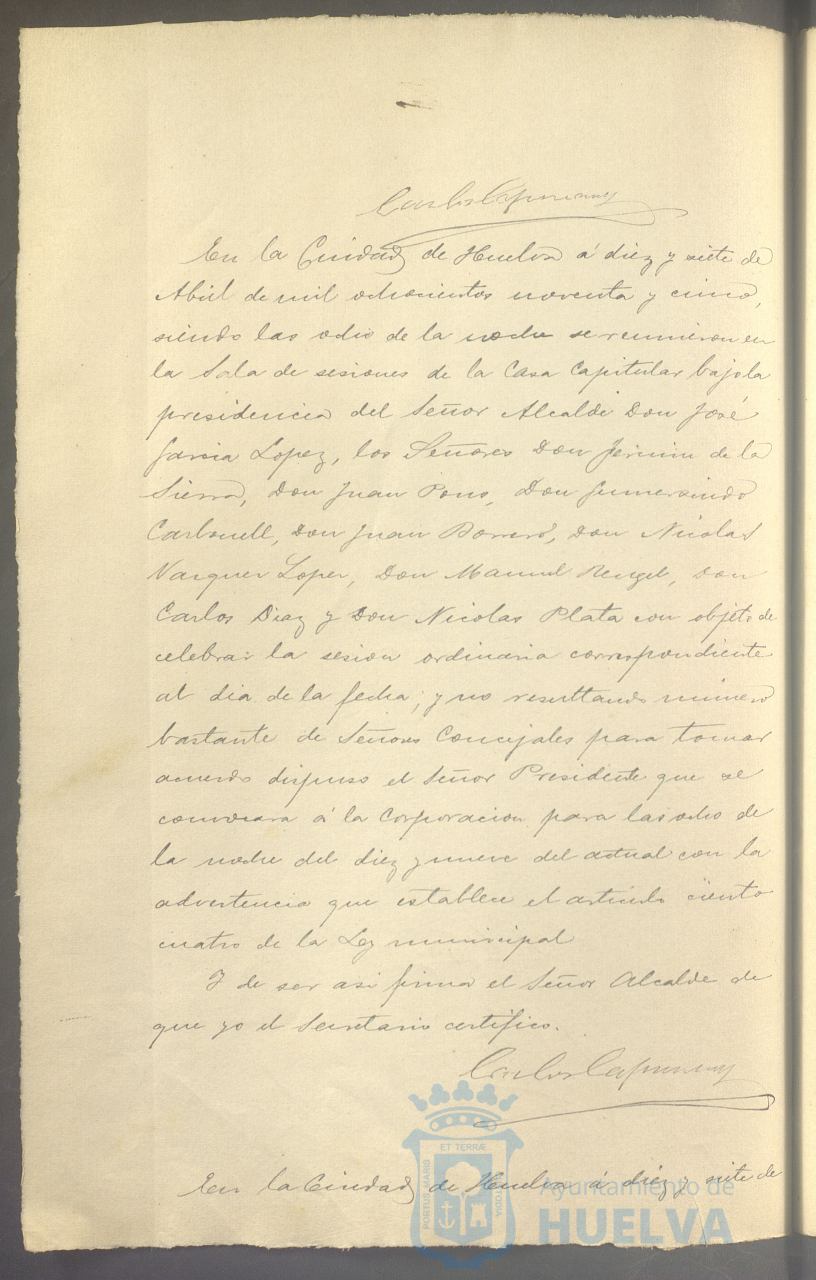 Carlos Capmany
En la Ciudad de Huelva á diez y siete de
Abril de mil ochocientos noventa y cinco,
siendo las ocho de la noche se reunieron en
la Sala de sesiones de la Casa Capitular bajo la
presidencia del Señor Alcalde Don José
Garcia Lopez, los Señores Don Fermin de la
Sierra, Don Juan Pons, Don Gumersindo
Carbonell, Don Juan Borrero, Don Nicolas
Vazquez Lopez, Don Manuel Rengel, Don
Carlos Diaz y Don Nicolas Plata con objeto de
celebrar la sesion ordinaria correspondiente
al dia de la fecha; y no resultando número
bastante de Señores Concejales para tomar
acuerdo dispuso el Señor Presidente que se
convocara á la Corporacion para las ocho de
la noche del diez y nueve del actual con la
advertencia que establece el articulo ciento
cuatro de la Ley municipal
Y de ser asi firma el Señor Alcalde de
que yo el Secretario certifico.
Carlos Capmany
En la Ciudad de Huelva á diez y siete de
PORTUS MARIS ET TERRÆ CUSTODIA
Ayuntamiento de
HUELVA